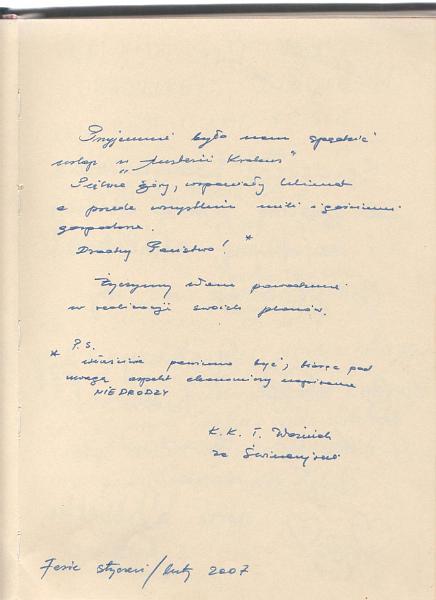 Przyjemnie było nam spędzić
urlop w „Austerii Krokus”
Piękne góry, wspaniały klimat
a przede wszystkim mili i gościnni
gospodarze.
Drodzy Państwo! *
Życzymy Wam powodzenia
w realizacji swoich planów.
P.S.
* właściwie powinno być, biorąc pod
uwagę aspekt ekonomiczny napisane
NIEDRODZY
K. K. I.
ze Świnoujścia
styczeń/luty 2007